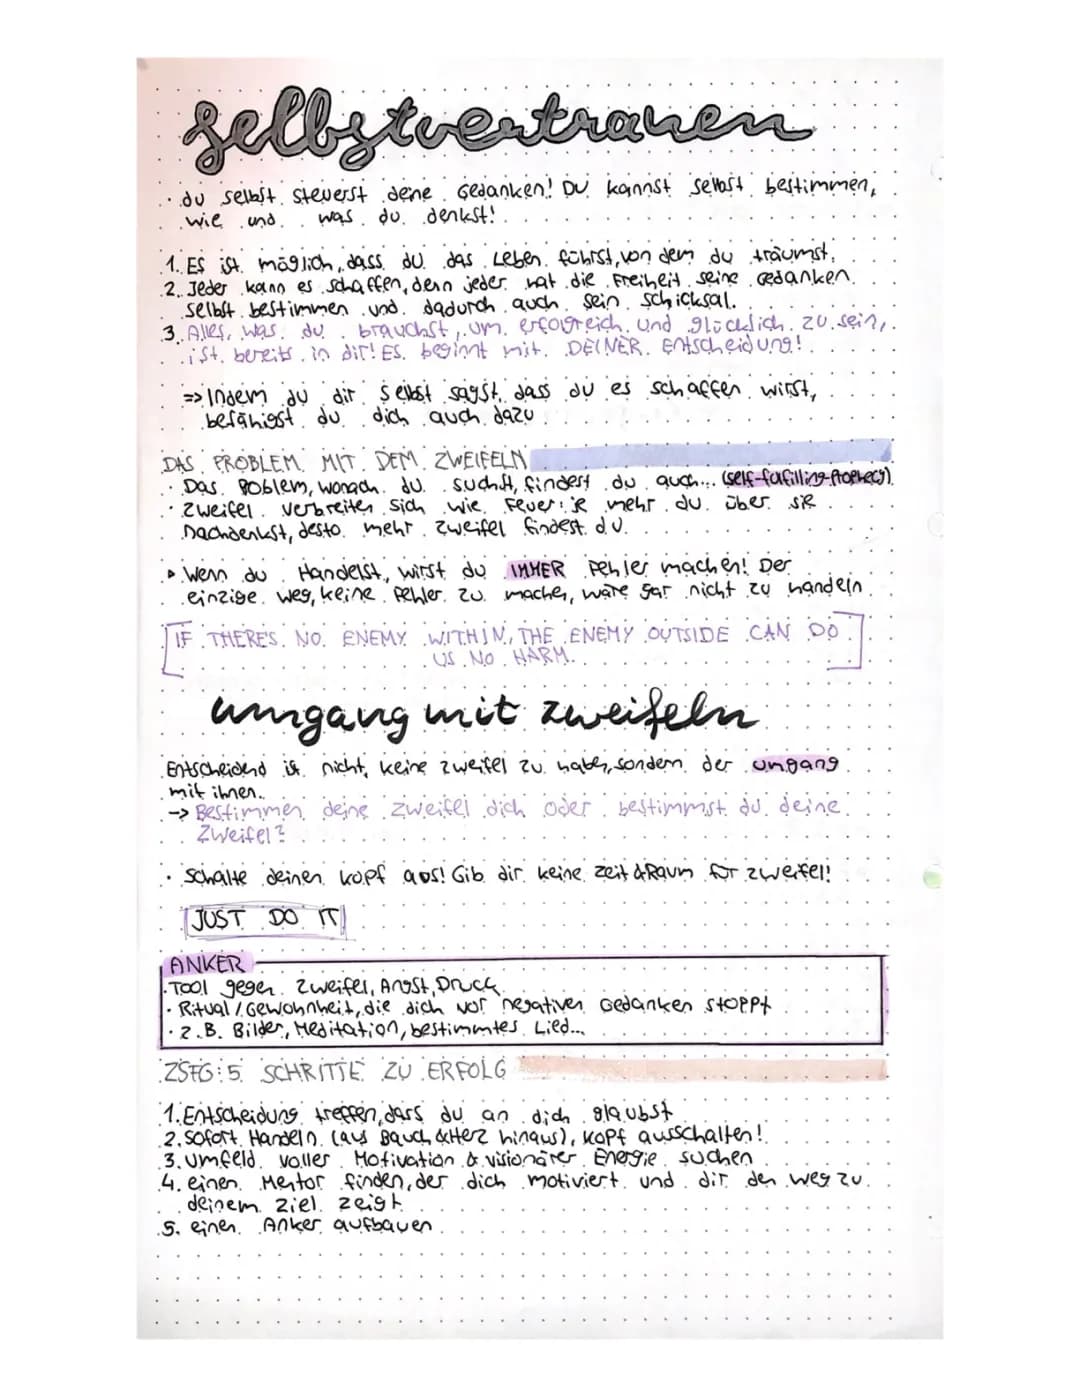 selbstvertrauen
· du selbst steuerst deine Gedanken! Du kannst selbst bestimmen,
wie und was du denkst!
1. Es ist möglich, dass du das Leben führst, von dem du träumst.
2. Jeder kann es schaffen, denn jeder hat die Freiheit seine Gedanken
selbst bestimmen und dadurch auch sein Schicksal.
3. Alles, was du brauchst, um erfolgreich und glücklich zu sein,
ist bereits in dir! Es beginnt mit DEINER Entscheidung!
=> Indem du dir selbst sagst, dass du es schaffen wirst,
befähigst du dich auch dazu
DAS PROBLEM MIT DEM ZWEIFELN
· Das Poblem, wonach du suchst, findest du auch... (self-fulfilling-Prophecy)
· Zweifel verbreiten sich wie Feuer: je mehr du über sie
Nachdenkst, desto mehr Zweifel findest du.
▸ Wenn du Handelst, wirst du IMMER Fehler machen! Der
einzige Weg, keine Fehler zu machen, wäre gar nicht zu handeln
[IF THERE'S NO ENEMY WITHIN, THE ENEMY OUTSIDE CAN DO
US NO HARM.]
umgang mit zweifeln
Entscheidend ist nicht, keine Zweifel zu haben, sondern der Umgang
mit ihnen.
-> Bestimmen deine Zweifel dich oder bestimmst du deine
Zweifel?
· Schalte deinen Kopf aus! Gib dir keine Zeit & Raum für Zweifel!
JUST DO IT
ANKER
· Tool gegen Zweifel, Angst, Druck
· Ritual / Gewohnheit, die dich vor negativen Gedanken stoppt
· z.B. Bilder, Meditation, bestimmtes Lied...
ZSFG: 5 SCHRITTE ZU ERFOLG
1. Entscheidung treffen, dass du an dich glaubst
2. Sofort Handeln (aus Bauch & Herz hinaus), Kopf ausschalten!
3. Umfeld voller Motivation & visionärer Energie suchen
4. einen Mentor finden, der dich motiviert und dir den Weg zu
deinem Ziel zeigt
5. einen Anker aufbauen